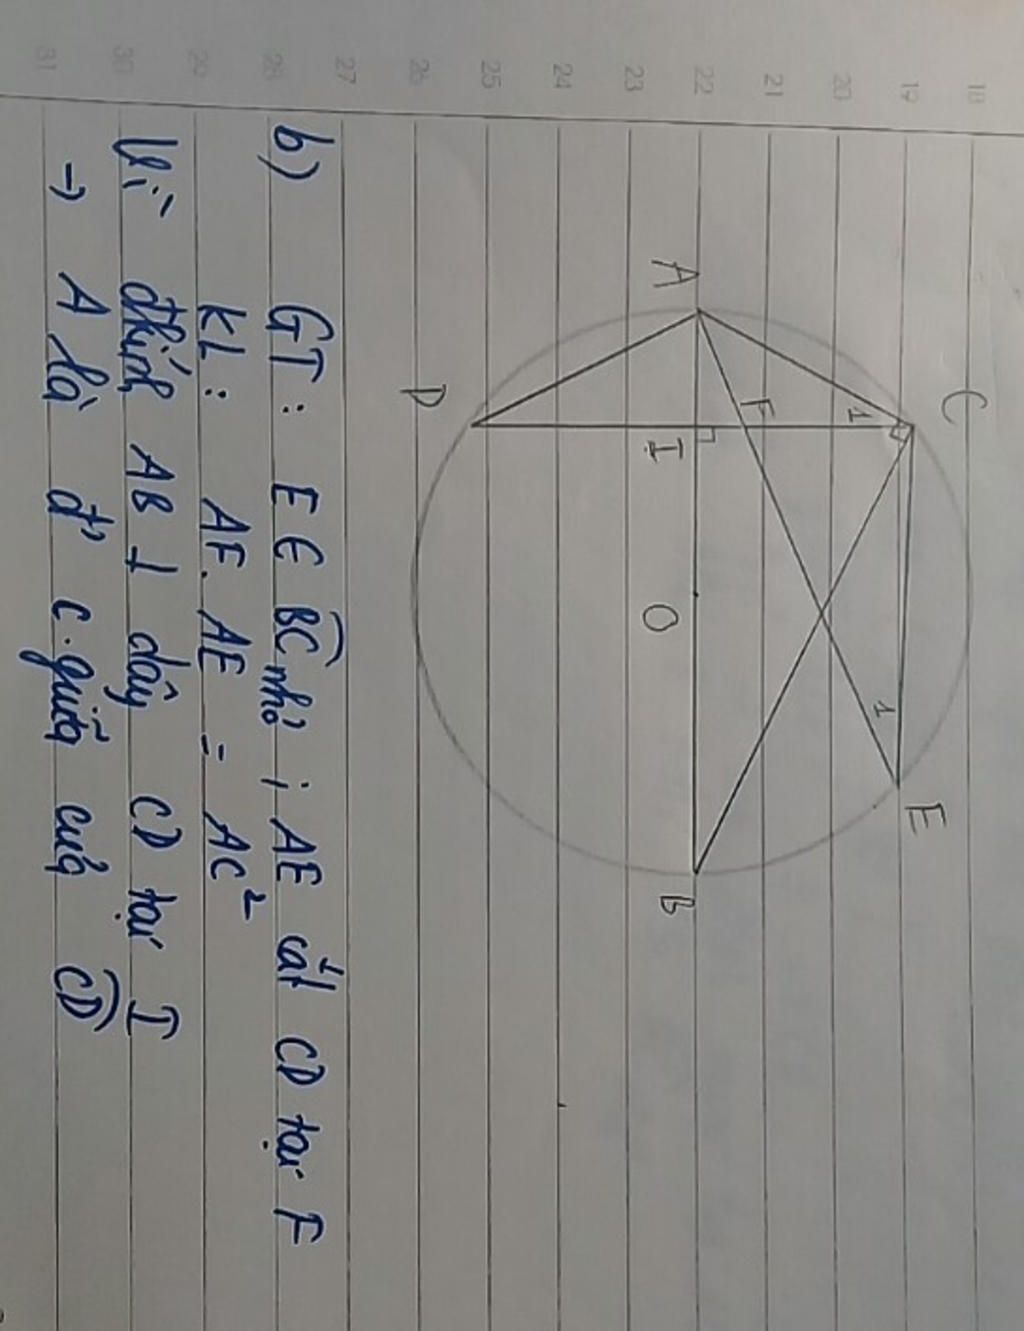 18 19 20 21 22 23 24 25 26 27 28 29 30 31
C
E
1
1
F
A
I
O
B
D
b) GT: E ∈ BC nhỏ ; AE cắt CD tại F
KL: AF. AE = AC²
Vì đkính AB ⊥ dây CD tại I
→ A là đ' c.giữa của CD